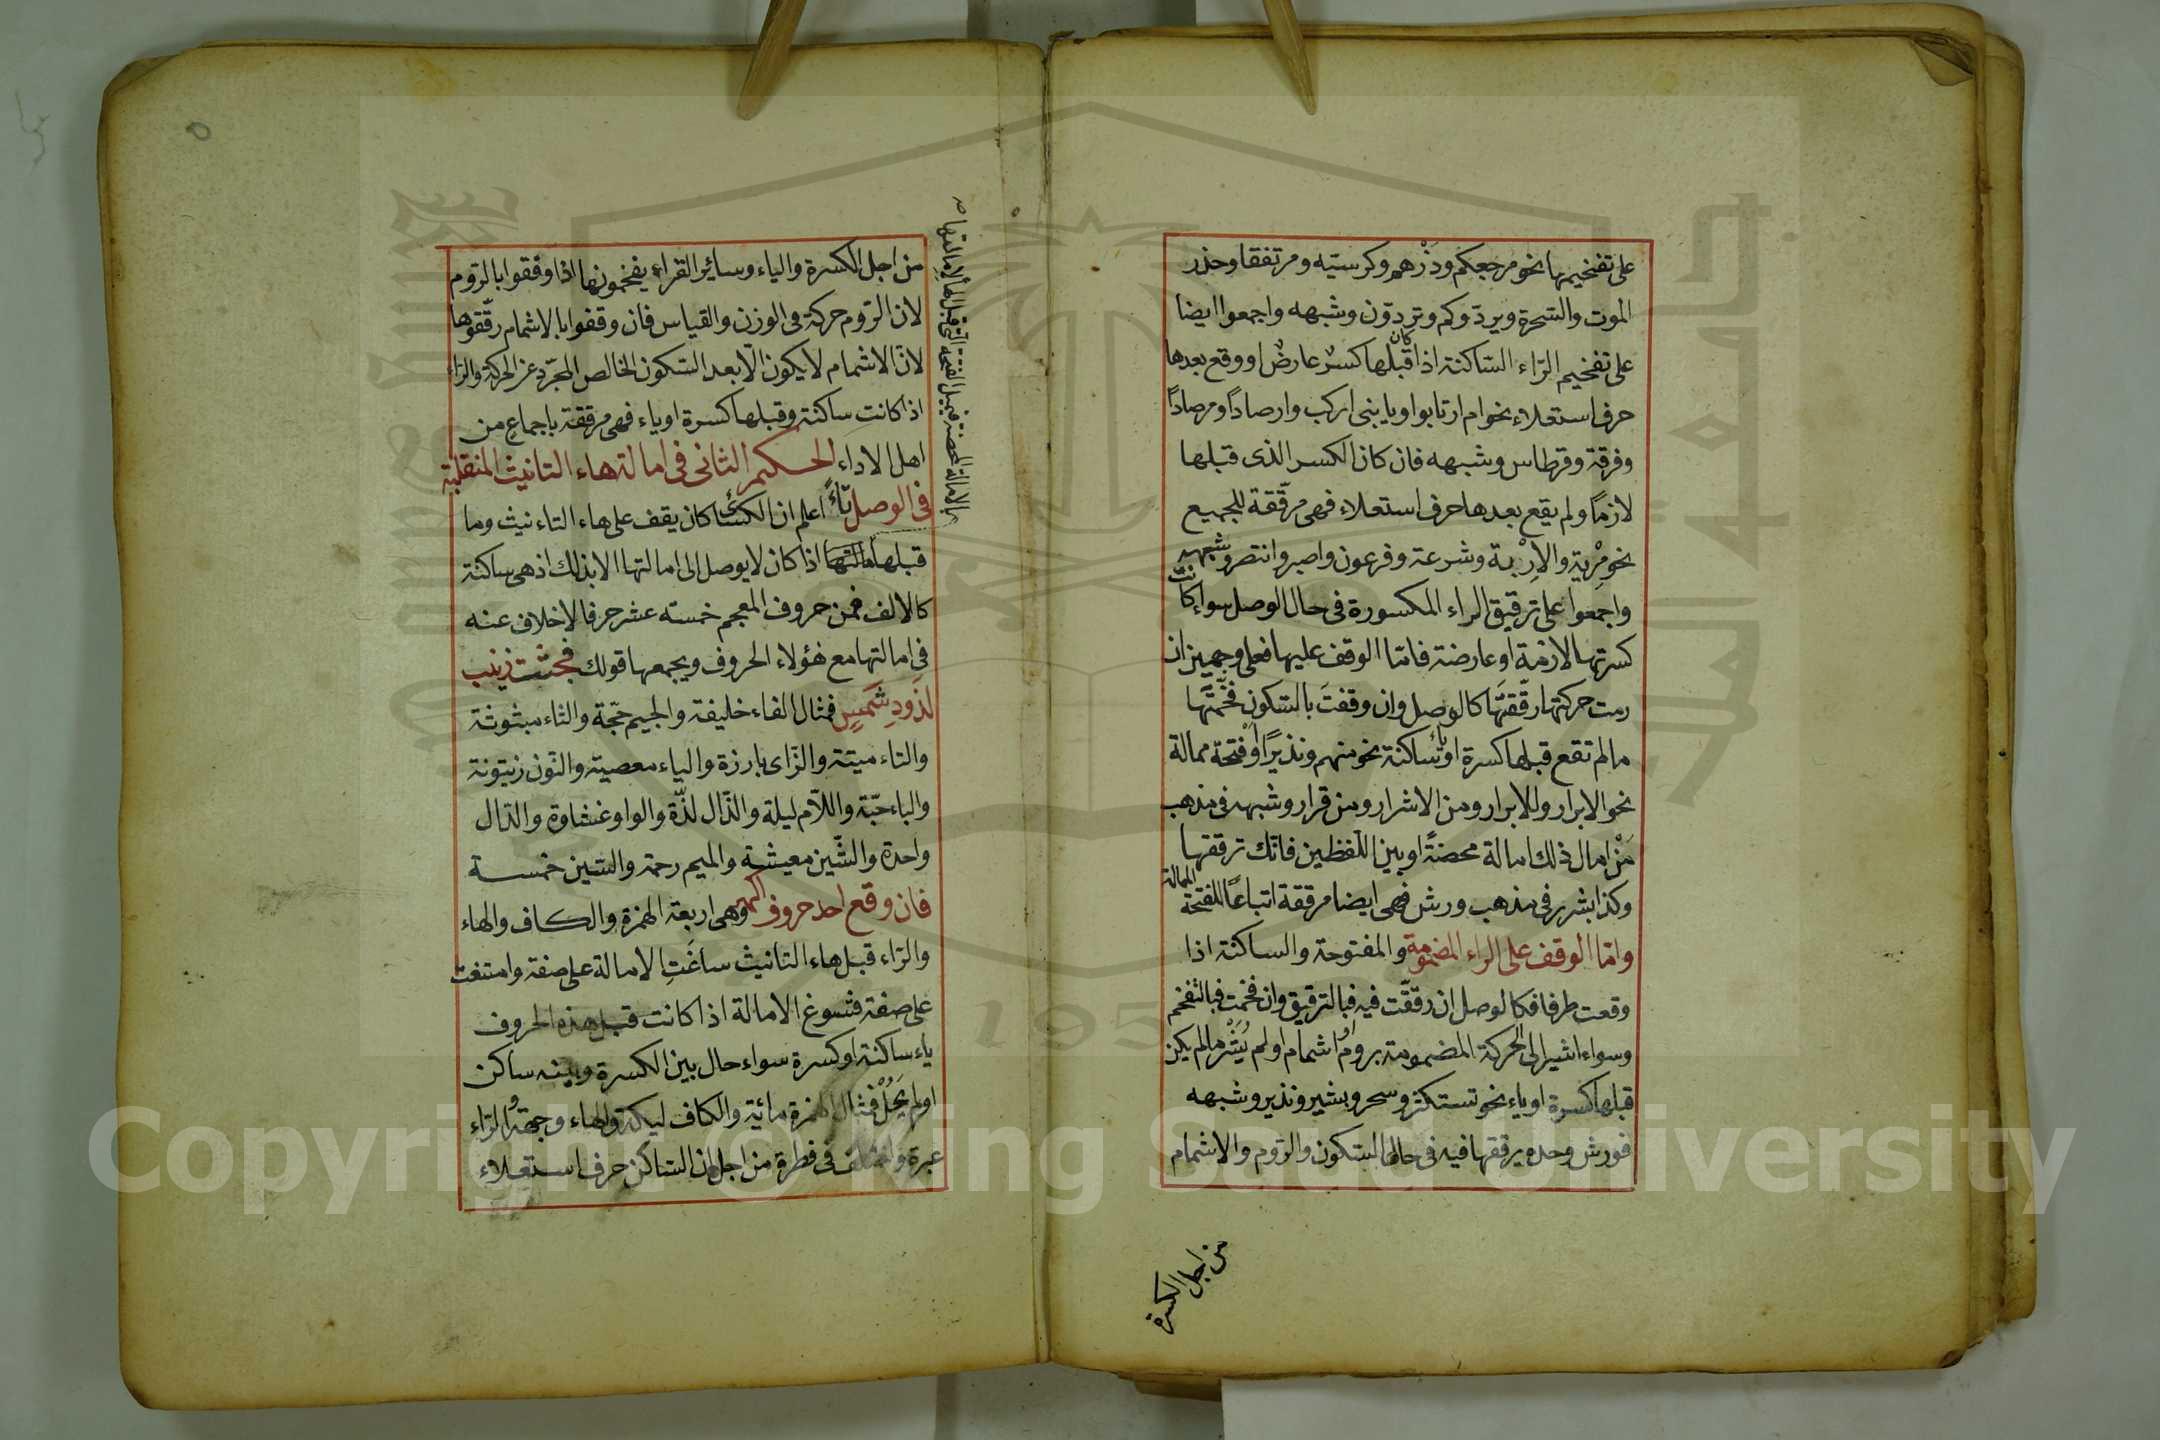 على تفخيمها نحو مرجعكم وذرهم وكرسيّه ومرتفقا وحذر
الموت والسّحرة ويردّوكم وتردّون وشبهه واجمعوا ايضا
على تفخيم الرّاء السّاكنة اذا كان قبلها كسر عارض او وقع بعدها
حرف استعلاء نحو ام ارتابوا ويا بنى اركب وارصادًا ومرصادًا
وفرقة وقرطاس وشبهه فان كان الكسر الذى قبلها
لازمًا ولم يقع بعدها حرف استعلاء فهى مرقّقة للجميع
نحو مرْية والاِرْبة وشرعة وفرعون واصبر وانتصر وشبهه
واجمعوا على ترقيق الراء المكسورة فى حال الوصل سواء كانت
كسرتها لازمة او عارضة فامّا الوقف عليها فعلى وجهين ان
رمت حركتها رقّقتَها كالوصل وان وقفتَ بالسّكون فخّمتَها
ما لم تقع قبلها كسرة او ياء ساكنة نحو منهمر ونذيرًا او فتحة ممالة
نحو الابرار وللابرار ومن الاشرار ومن قرار وشبهه فى مذهب
مَنْ امال ذلك امالة محضةً او بين اللّفظين فانّك ترققها
وكذا بشرر فى مذهب ورش فهى ايضا مرققة اتباعًا للفتحة الممالة
وامّا الوقف على الراء المضمومة والمفتوحة والساكنة اذا
وقعت طرفا فكالوصل ان رقّقت فيه فبالترقيق وان فخمت فبالتفخم
وسواء اشير الى الحركة المضمومة بروم او اشمام او لم يُشَرْ ما لم يكن
قبلها كسرة او ياء نحو تستكثر وسحر وبشير ونذير وشبهه
فورش وحده يرققها فيه فى حال السّكون والرّوم والاشمام
من اجل الكسرة
من اجل الكسرة والياء وسائر القراء يفخمونها اذا وقفوا بالرّوم
لان الرّوم حركة فى الوزن والقياس فان وقفوا بالاشمام رقّقوها
لانّ الاشمام لا يكون الّا بعد السّكون الخالص المجرّد عن الحركة والرّاء
اذا كانت ساكنة وقبلها كسرة او ياء فهى مرققة باجماع من
اهل الاداء الحكم الثانى فى امالة هاء التانيث المنقلبة
فى الوصل تاءً اعلم ان الكسائى كان يقف على هاء التاءنيث وما
قبلها امالتها اذا كان لا يوصل الى امالتها الا بذلك اذ هى ساكنة
كالالف فمن حروف المعجم خمسته عشر حرفا لا خلاف عنه
فى امالتها مع هؤلاء الحروف ويجمعها قولك فجثت زينب
لذَودِ شَمسٍ فمثال الفاء خليفة والجيم حجّة والثاء مبثوثة
والتاء ميتة والزّاى بارزة والياء معصية والنّون زيتونة
والباء حبّة واللّام ليلة والذّال لذّة والواو غشاوة والدّال
واحدة والشّين معيشة والميم رحمة والسّين خمسة
فان وقع احد حروف اكهر وهى اربعة الهمزة والكاف والهاء
والرّاء قبل هاء التانيث ساغَتِ الامالة على صفة وامتنعت
على صفة فتسوغ الامالة اذا كانت قبل هذه الحروف
ياء ساكنة او كسرة سواء حال بين الكسرة وبينه ساكن
او لم يَحُلْ فمثال الهمزة مائية والكاف ليكة والهاء وجهة والرّاء
عبرة واختلف فى فطرة من اجل ان السّاكن حرف استعلاء
بالامالة المحضة فيميل الفتحة التى قبل الهاء لامالتها صح